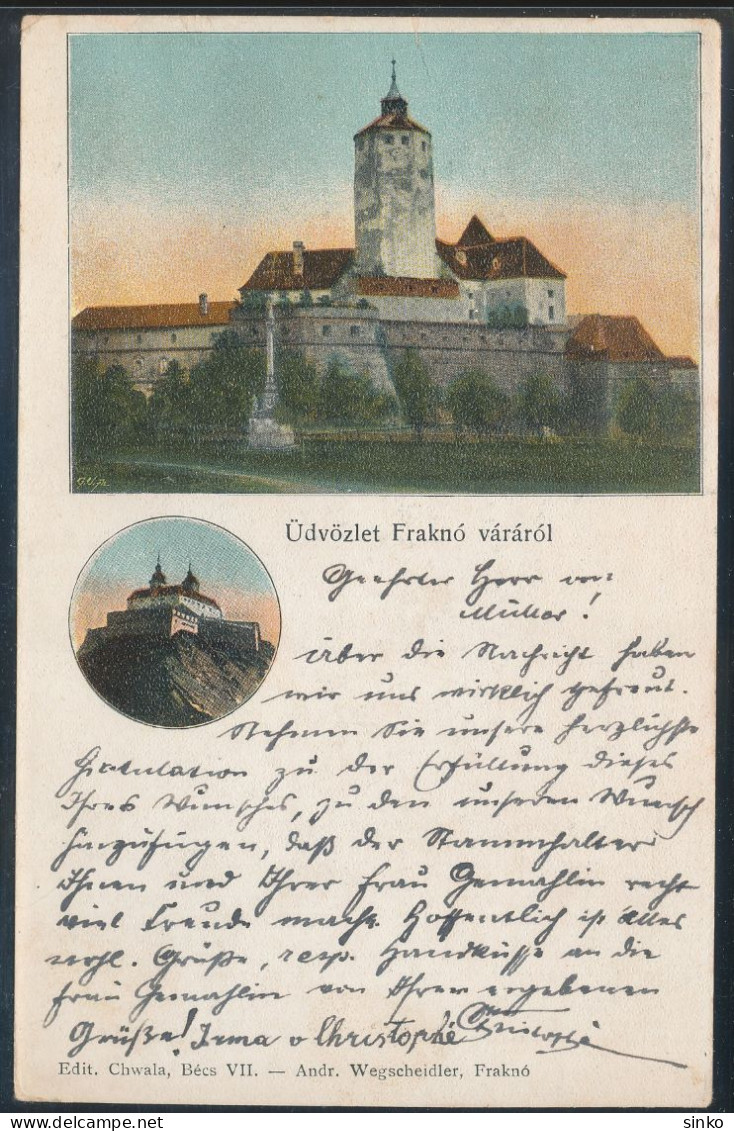 Üdvözlet Fraknó váráról
Geehrter Herr von
Müller!
Über die Nachricht haben
wir uns wirklich gefreut.
Nehmen Sie unsere herzlichste
Gratulation zu der Erfüllung dieses
Ihres Wunsches, zu den unseren Wunsch
hinzufügen, daß der Stammhalter
Ihnen und Ihrer Frau Gemahlin recht
viel Freude macht. Hoffentlich ist Alles
wohl. Grüße, resp. Handküsse an die
Frau Gemahlin von Ihrem ergebenen
Grüße! Irma v Christophé Christophé
Edit. Chwala, Bécs VII. — Andr. Wegscheidler, Fraknó
sinko